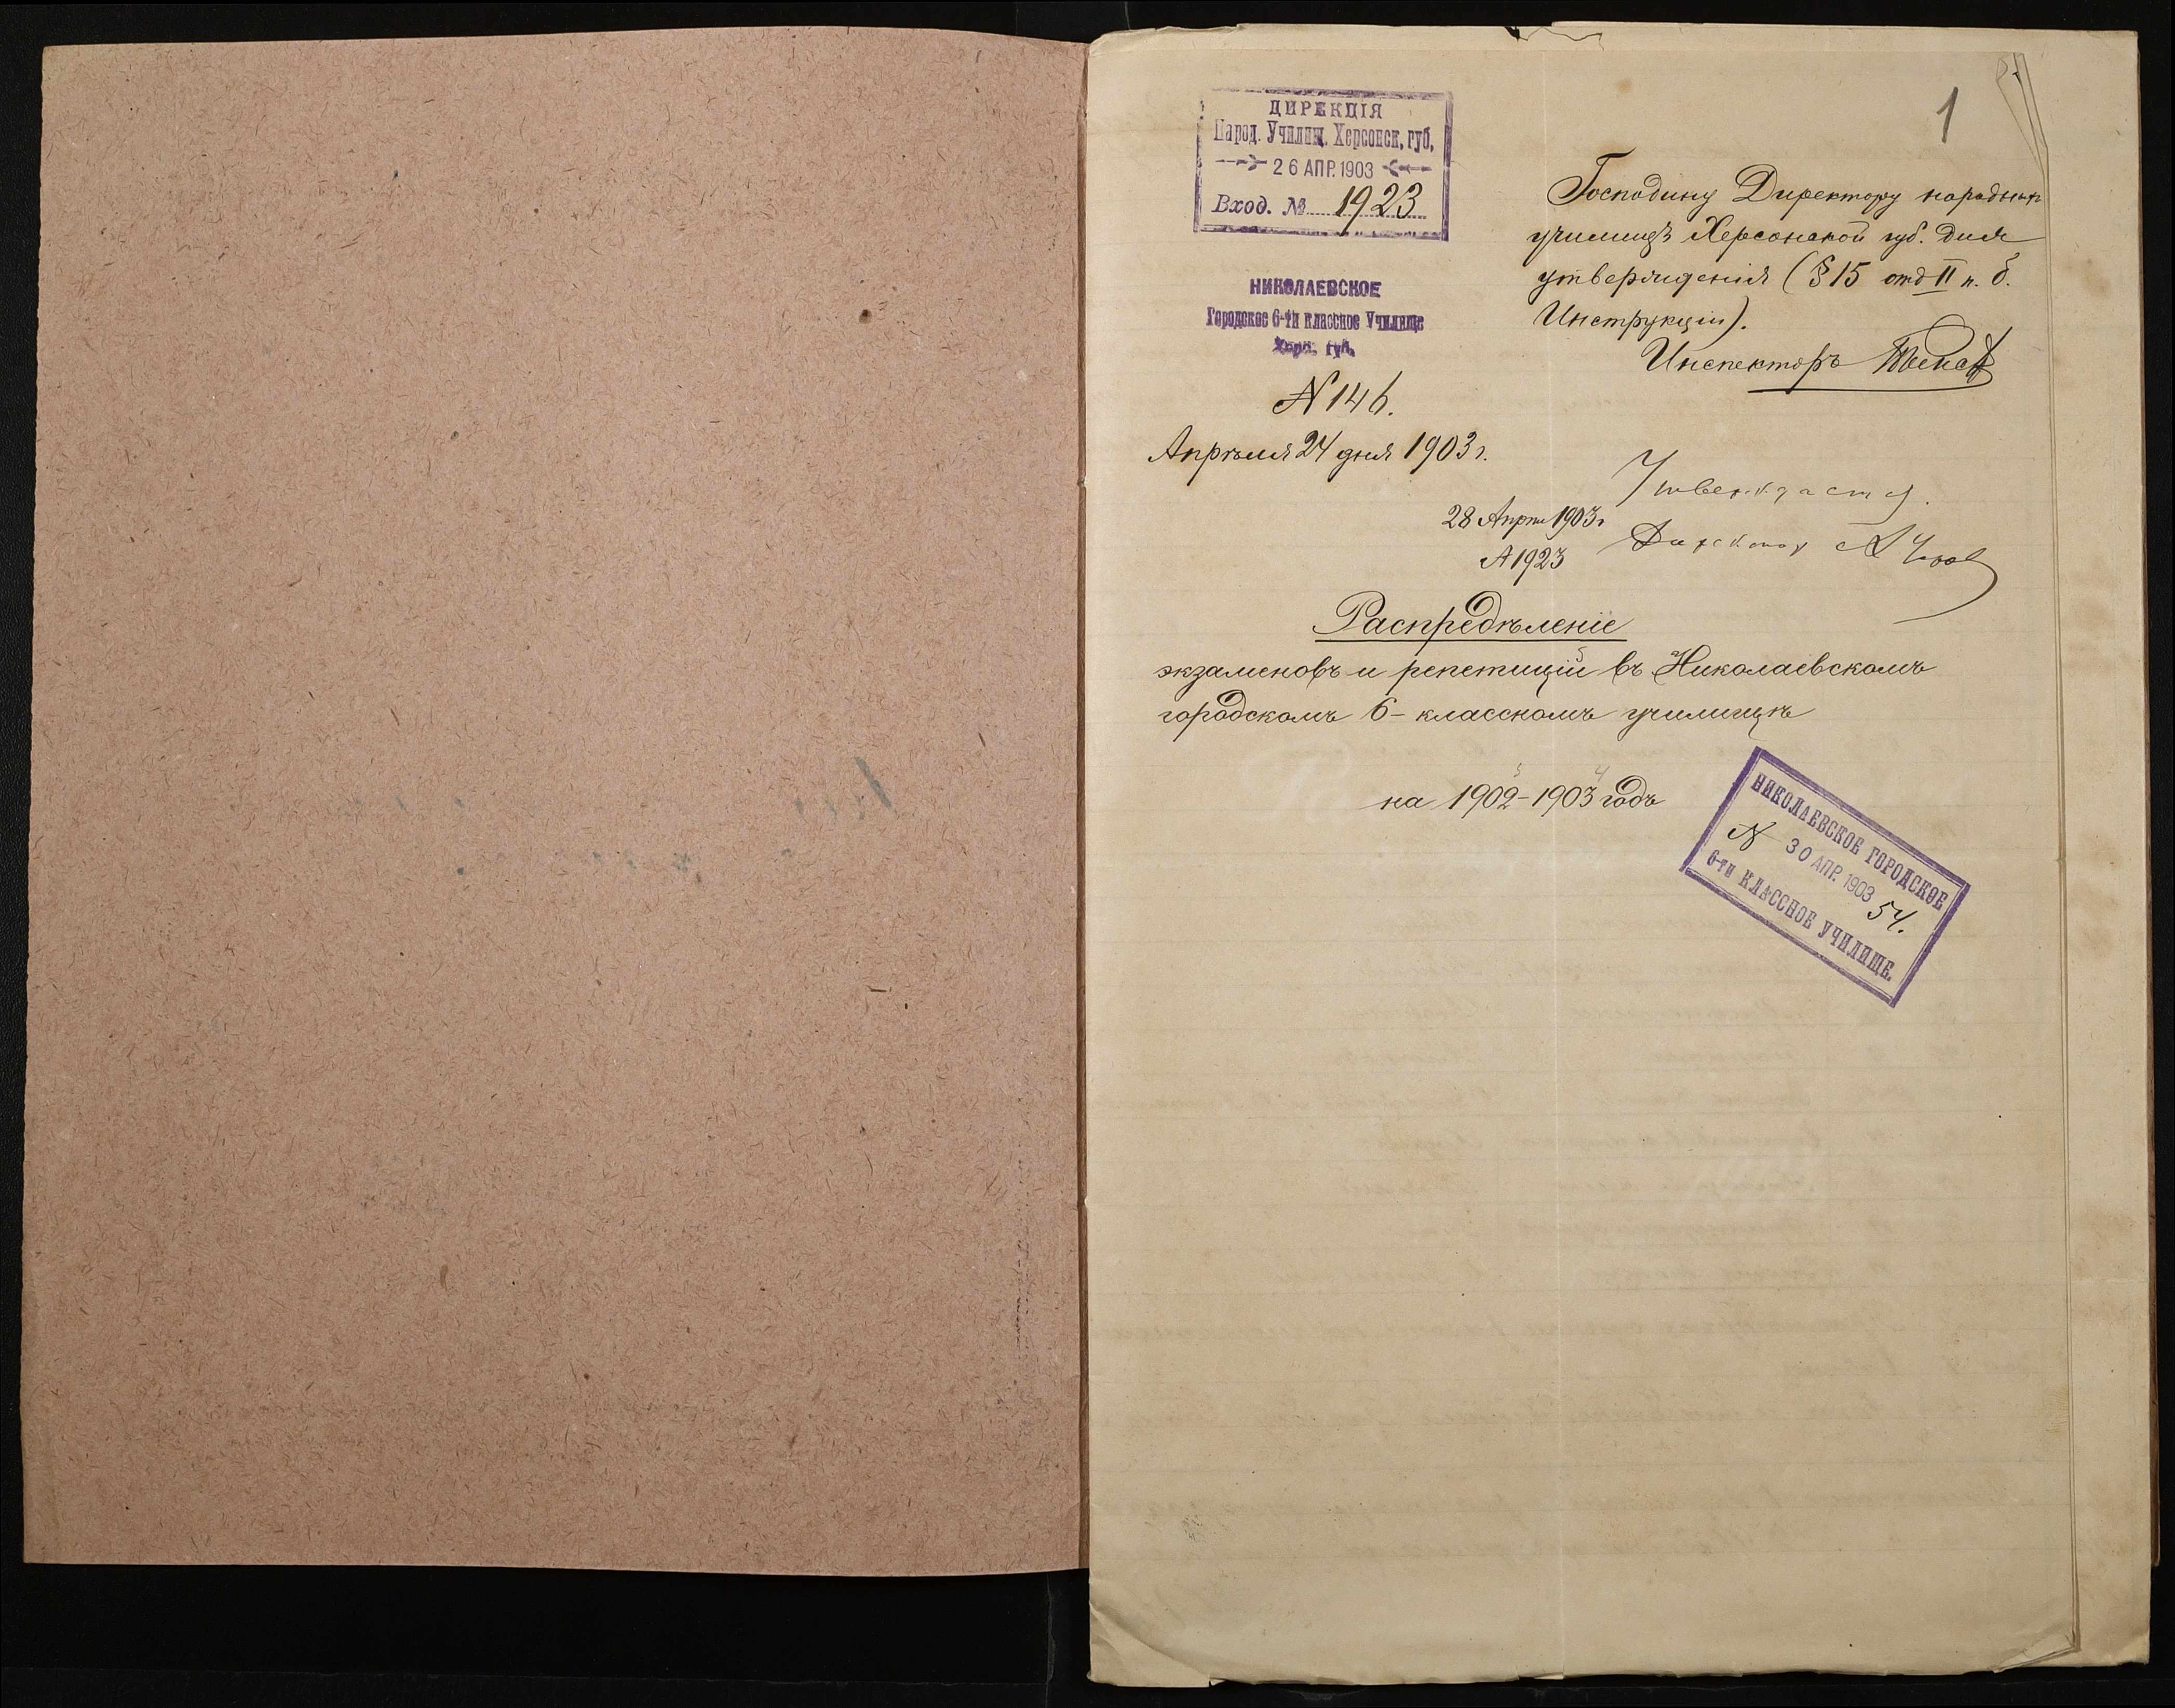 1
ДИРЕКЦІЯ
Народ. Училищ. Херсонск. губ.
26 АПР. 1903
Вход. № 1923
Господину Директору народных
училищъ Херсонской губ. для
утвержденія (§ 15 отд II п. б.
Инструкціи).
Инспекторъ
НИКОЛАЕВСКОЕ
Городское 6-ти классное Училище
Херс. губ.
№ 146.
Апрѣля 24 дня 1903 г.
Утверждается.
28 Апрѣля 1903 г
№ 1923
Директор А
Распредѣленіе
экзаменовъ и репетицій въ Николаевскомъ
городскомъ 6-классномъ училищѣ
3 4
на 1902-1903 годъ
НИКОЛАЕВСКОЕ ГОРОДСКОЕ
№ 30 АПР. 1903 54.
6-ти КЛАССНОЕ УЧИЛИЩЕ.